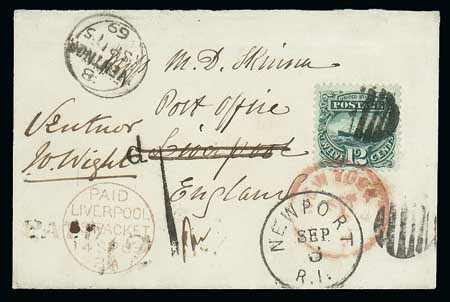 VENTNOR
B
SP 15
69
M. D. Skinner
Post Office
Liverpool
England
Ventnor
I. Wight
POSTAGE
TWELVE CENTS
12
PAID
LIVERPOOL
PACKET
NEW YORK
NEWPORT
SEP.
3
R.I.